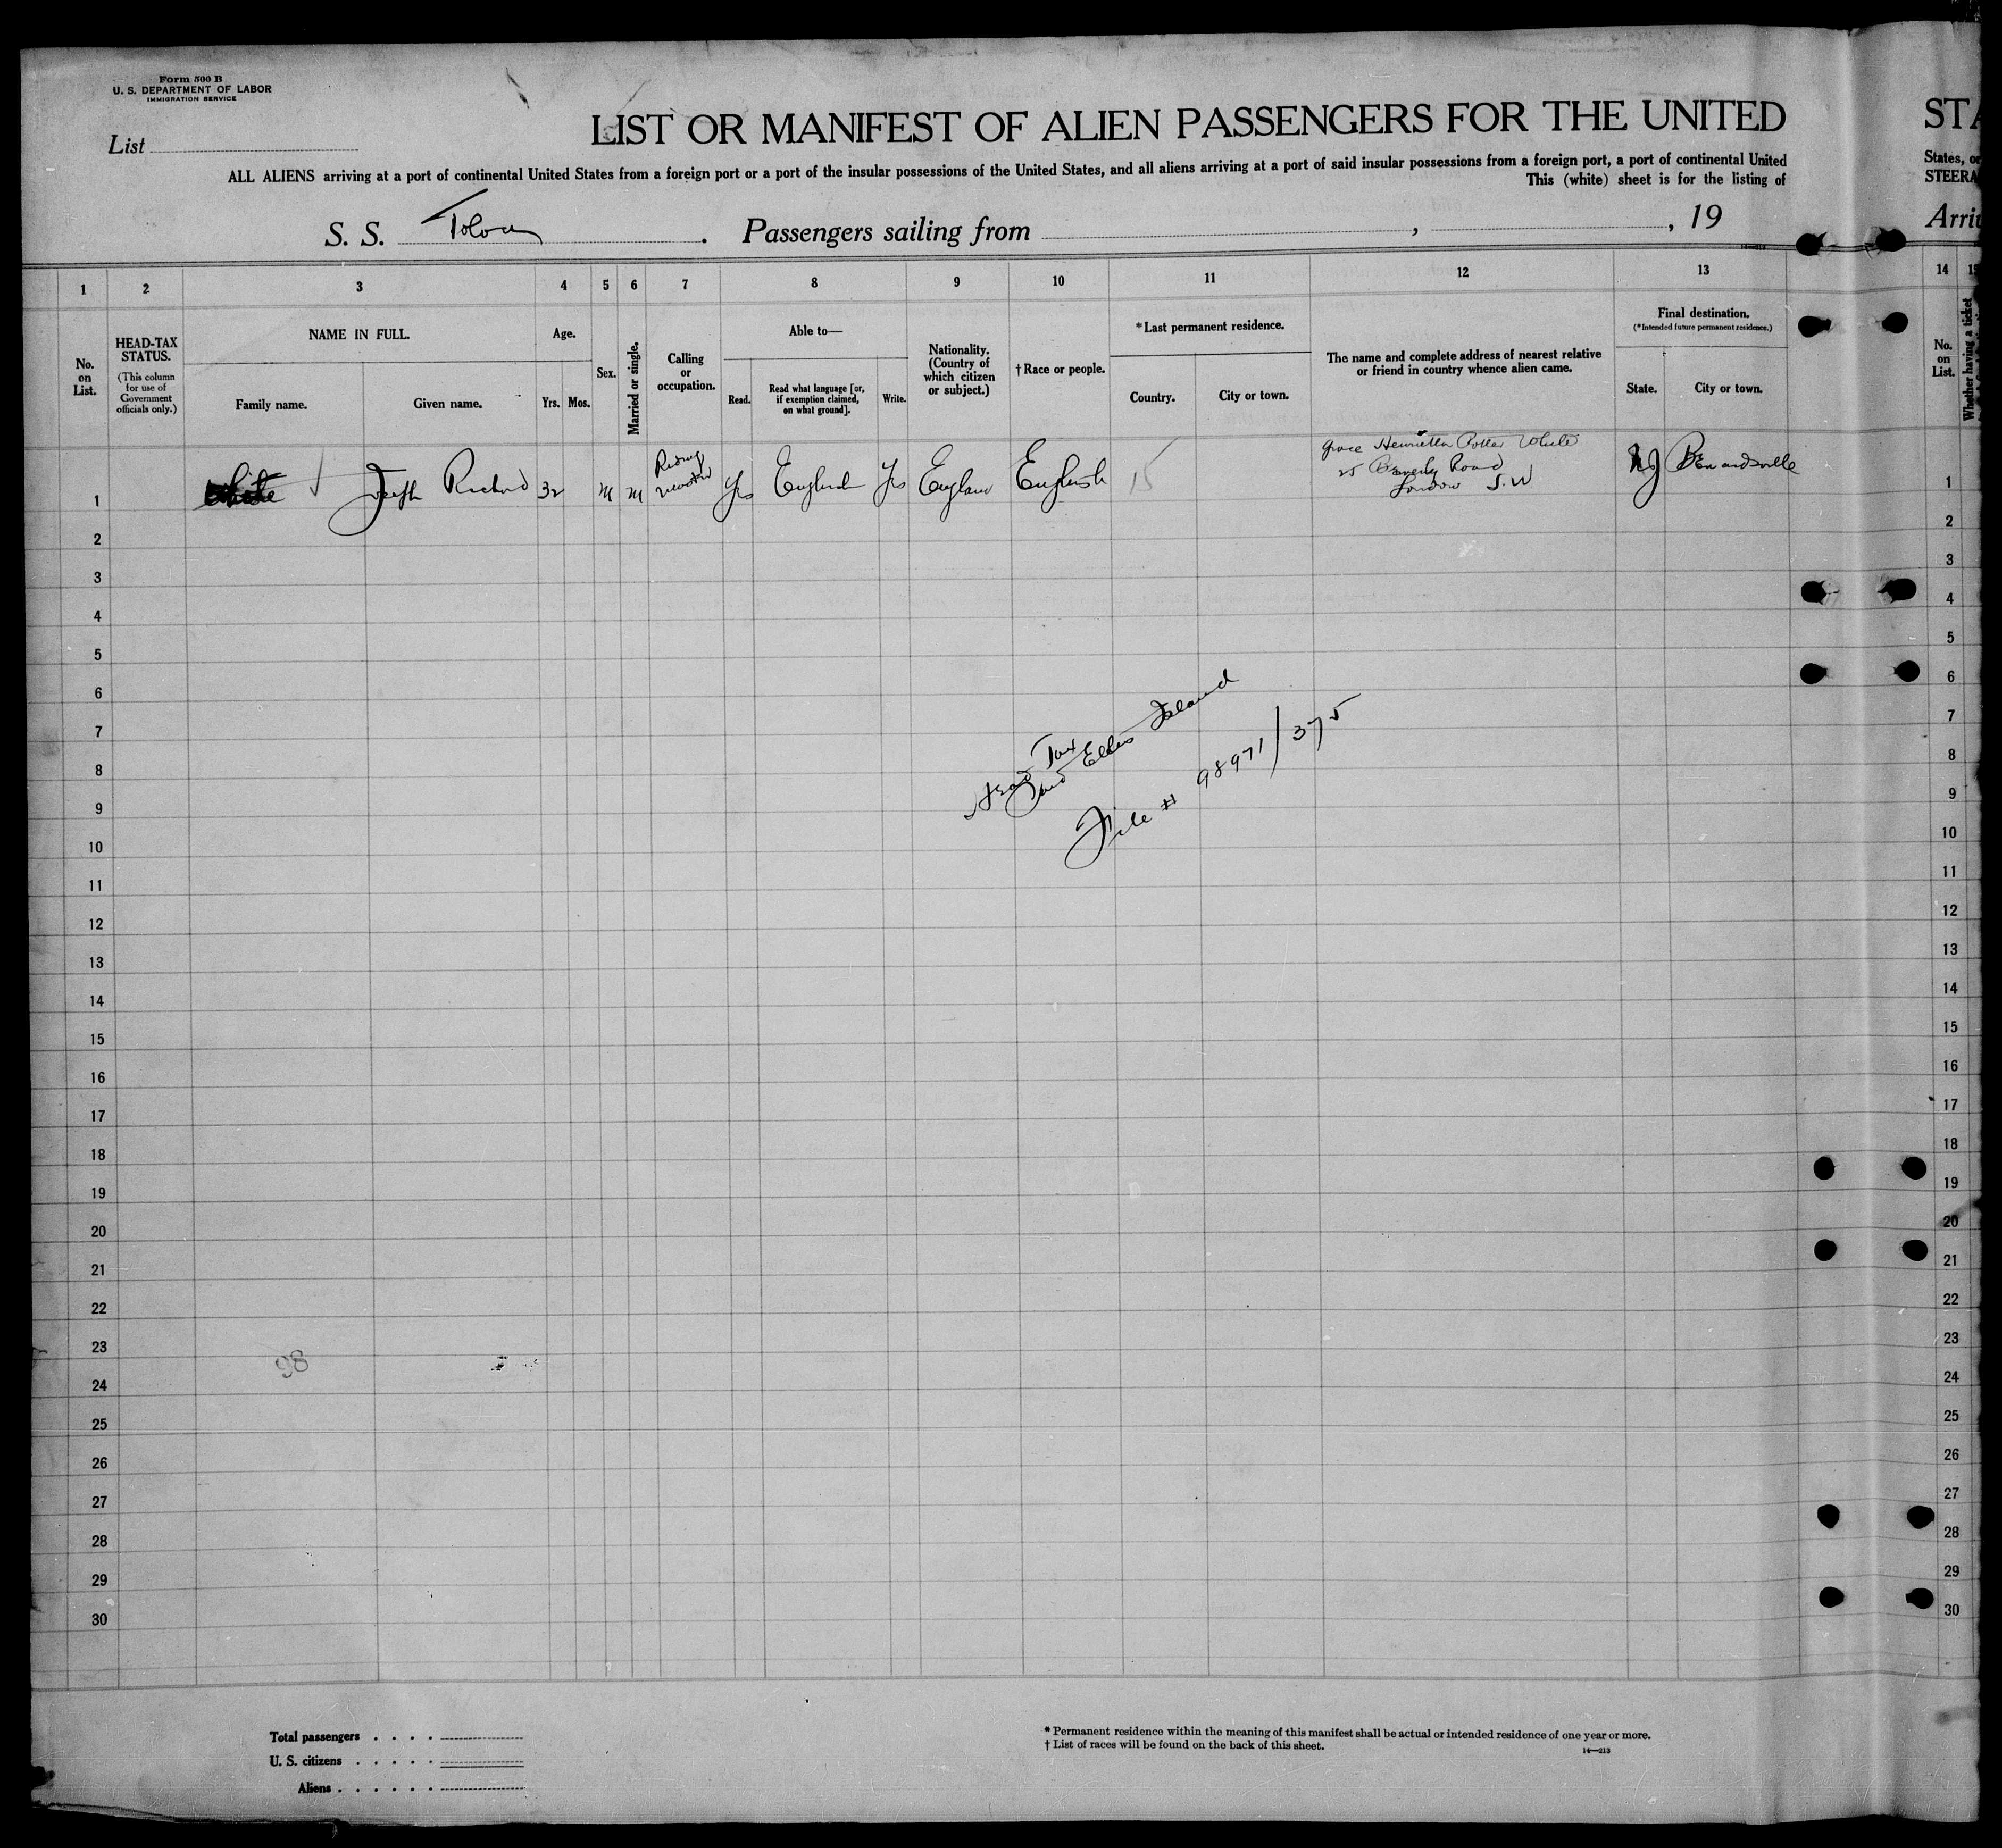 Form 500 B
U. S. DEPARTMENT OF LABOR
IMMIGRATION SERVICE
List
LIST OR MANIFEST OF ALIEN PASSENGERS FOR THE UNITED
STA
ALL ALIENS arriving at a port of continental United States from a foreign port or a port of the insular possessions of the United States, and all aliens arriving at a port of said insular possessions from a foreign port, a port of continental United
States, or
This (white) sheet is for the listing of
STEERA
S. S. . Passengers sailing from , , 19
Arri
1 2 3 4 5 6 7 8 9 10 11 12 13 14 15
No. on List.
HEAD-TAX STATUS.
(This column for use of Government officials only.)
NAME IN FULL.
Family name.
Given name.
Age.
Yrs. Mos.
Sex.
Married or single.
Calling or occupation.
Able to—
Read.
Read what language [or, if exemption claimed, on what ground].
Write.
Nationality. (Country of which citizen or subject.)
† Race or people.
* Last permanent residence.
Country.
City or town.
The name and complete address of nearest relative or friend in country whence alien came.
Final destination.
(* Intended future permanent residence.)
State.
City or town.
No. on List.
Whether having a ticket
1 White Joseph Richard 32 M M Riding Yes English Yes England English 15
Grace Henrietta Potter White
25 Beverly Road
London S.W
NJ Bernardsville
1
2 2
3 3
4 4
5 5
6 6
7 7
8 8
9 9
10 10
11 11
12 12
13 13
14 14
15 15
16 16
17 17
18 18
19 19
20 20
21 21
22 22
23 23
24 24
25 25
26 26
27 27
28 28
29 29
30 30
Head Tax
Paid Ellis Island
File # 98971/375
98
Total passengers . . . .
U. S. citizens . . . . .
Aliens . . . . . .
* Permanent residence within the meaning of this manifest shall be actual or intended residence of one year or more.
† List of races will be found on the back of this sheet.
14—213